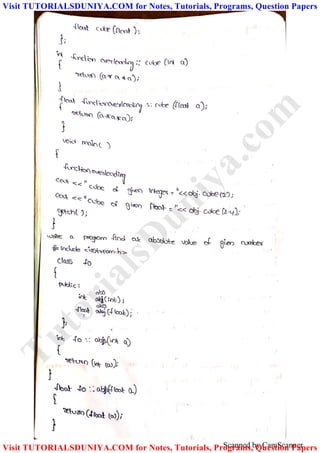 Visit TUTORIALSDUNIYA.COM for Notes, Tutorials, Programs, Question Papers
float cube (float);
};
int function overloading :: cube (int a)
{
return (a*a*a);
}
float function overloading :: cube (float a);
{
return (a*a*a);
}
void main( )
{
function overloading
cout <<" cube of given Integer = "<<obj. cube(2);
cout <<" cube of given float = "<< obj. cube (2.4);
getch( );
}
write a program find out absolute value of given number
# include <iostream.h>
class fo
{
public:
int abs(int);
float abs(float);
};
int fo :: abs(int a)
{
return (int (a));
}
float fo :: abs(float a)
{
return (float (a));
}
TutorialsDuniya.com
Scanned by CamScanner
Visit TUTORIALSDUNIYA.COM for Notes, Tutorials, Programs, Question Papers